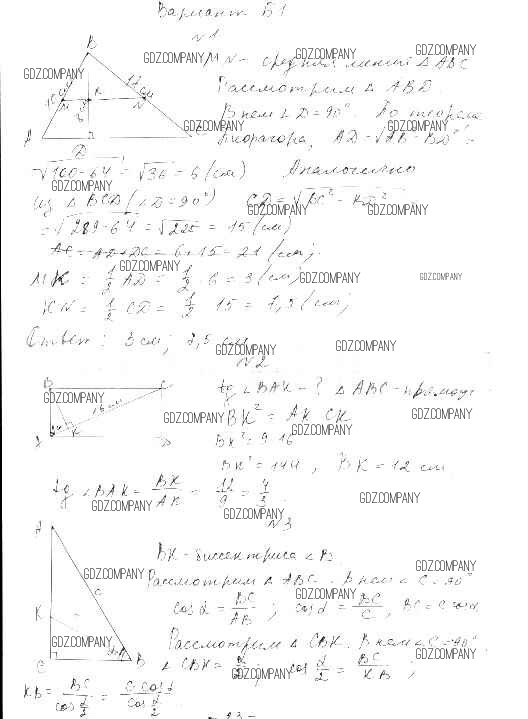 Вариант Б1
N1
MN - средняя линия Δ ABC
Рассмотрим Δ ABD.
В нем ∠D = 90°. По теореме
Пифагора, AD = √AB² - BD² =
√100 - 64 = √36 = 6 (см) Аналогично
из Δ BCD (∠D = 90°) CD = √BC² - BD²
= √289 - 64 = √225 = 15 (см)
AC = AD + DC = 6 + 15 = 21 (см);
MK = 1/2 AD = 1/2 · 6 = 3 (см)
KN = 1/2 CD = 1/2 · 15 = 7,5 (см)
Ответ: 3 см; 7,5 см
N2
tg ∠BAK - ? Δ ABC - прямоуг.
BK² = AK · CK
BK² = 9 · 16
BK² = 144, BK = 12 см
tg ∠BAK = BK/AK = 12/9 = 4/3
N3
BK - биссектриса ∠B
Рассмотрим Δ ABC. В нем ∠C = 90°
cos α = BC/AB; cos α = BC/C, BC = C cos α
Рассмотрим Δ CBK. В нем ∠C = 90°
∠CBK = α/2; cos α/2 = BC/KB;
KB = BC/cos α/2 = C cos α/cos α/2
- 23 -
GDZ.COMPANY